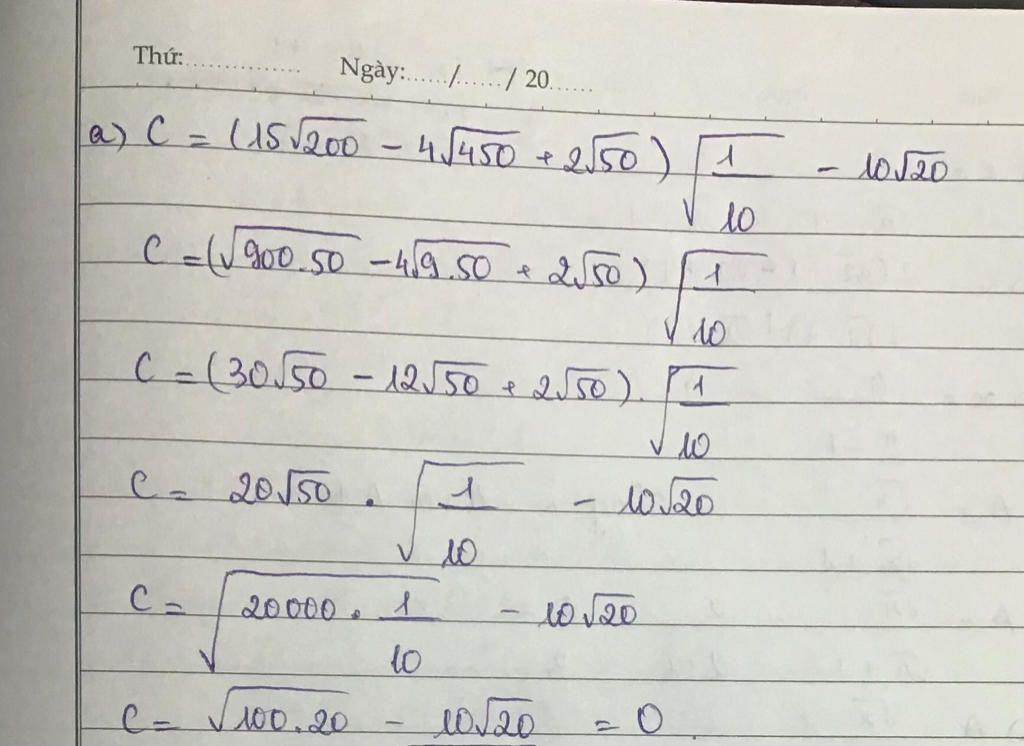 Thứ:............... Ngày:....../....../ 20......
a) C = (15√200 - 4√450 + 2√50) √(1/10) - 10√20
C = (√900.50 - 4√9.50 + 2√50) √(1/10)
C = (30√50 - 12√50 + 2√50). √(1/10)
C = 20√50 . √(1/10) - 10√20
C = √(20000 . 1/10) - 10√20
C = √100.20 - 10√20 = 0